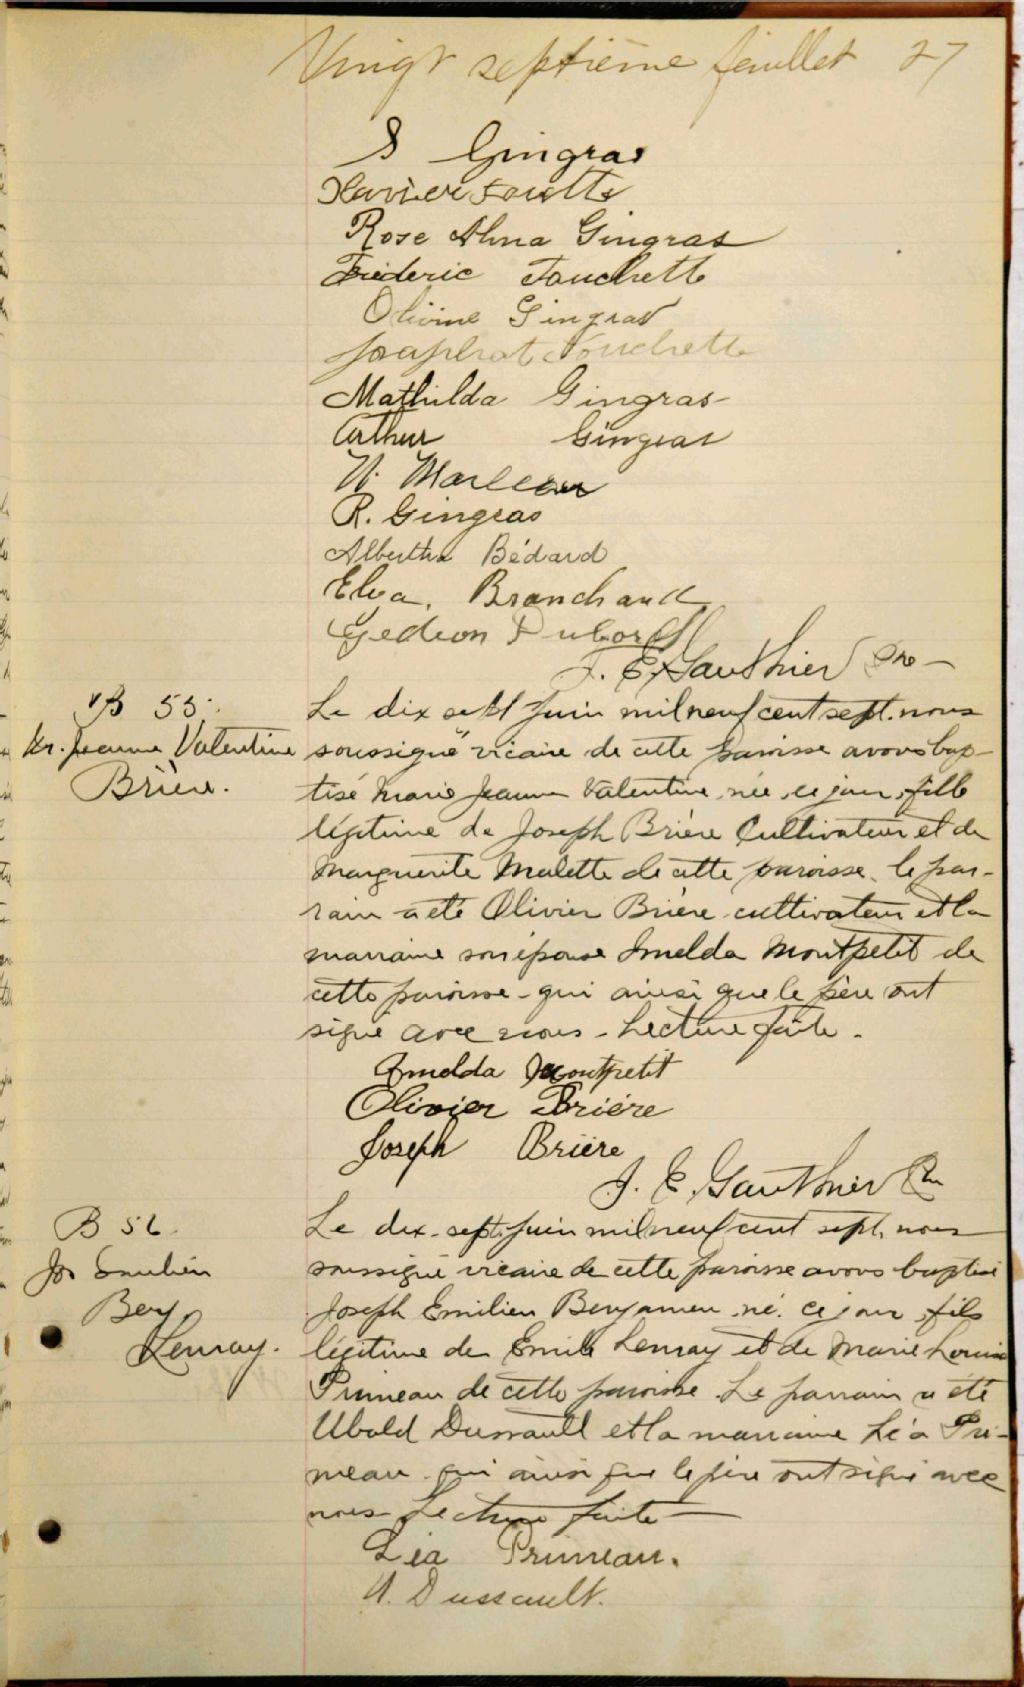 Vingt septième feuillet 27
S Gingras
Xavier
Rose Alma Gingras
Fréderic Touchette
Olivine Gingras
Josaphat Touchette
Mathilda Gingras
Arthur Gingras
N. Marleau
R. Gingras
Albertha Bédard
Elva. Branchaud
Gedeon Dubord
J. E. Gauthier Ptre
B 55.
Mr. Jeanne Valentine
Brière.
Le dix sept Juin mil neuf cent sept. nous
soussigné vicaire de cette paroisse avons bap-
tisé Marie Jeanne Valentine, née, ce jour, fille
légitime de Joseph Brière Cultivateur et de
Marguerite Malette de cette paroisse. le par-
rain a été Olivier Brière cultivateur et la
marraine son épouse Imelda Montpetit de
cette paroisse - qui ainsi que le père ont
signé avec nous - Lecture faite -
Amelda Montpetit
Olivier Brière
Joseph Brière
J. E. Gauthier Ptre
B 56.
Jos Emilien
Benj
Lemay.
Le dix-sept Juin mil neuf cent sept, nous
soussigné vicaire de cette paroisse avons baptisé
Joseph Emilien Benjamen, né, ce jour, fils
légitime de Emile Lemay et de Marie Louise
Primeau de cette paroisse. Le parrain a été
Ubald Dussault et la marraine Léa Pri-
meau qui ainsi que le père ont signé avec
nous Lecture faite
Léa Primeau.
U. Dussault.